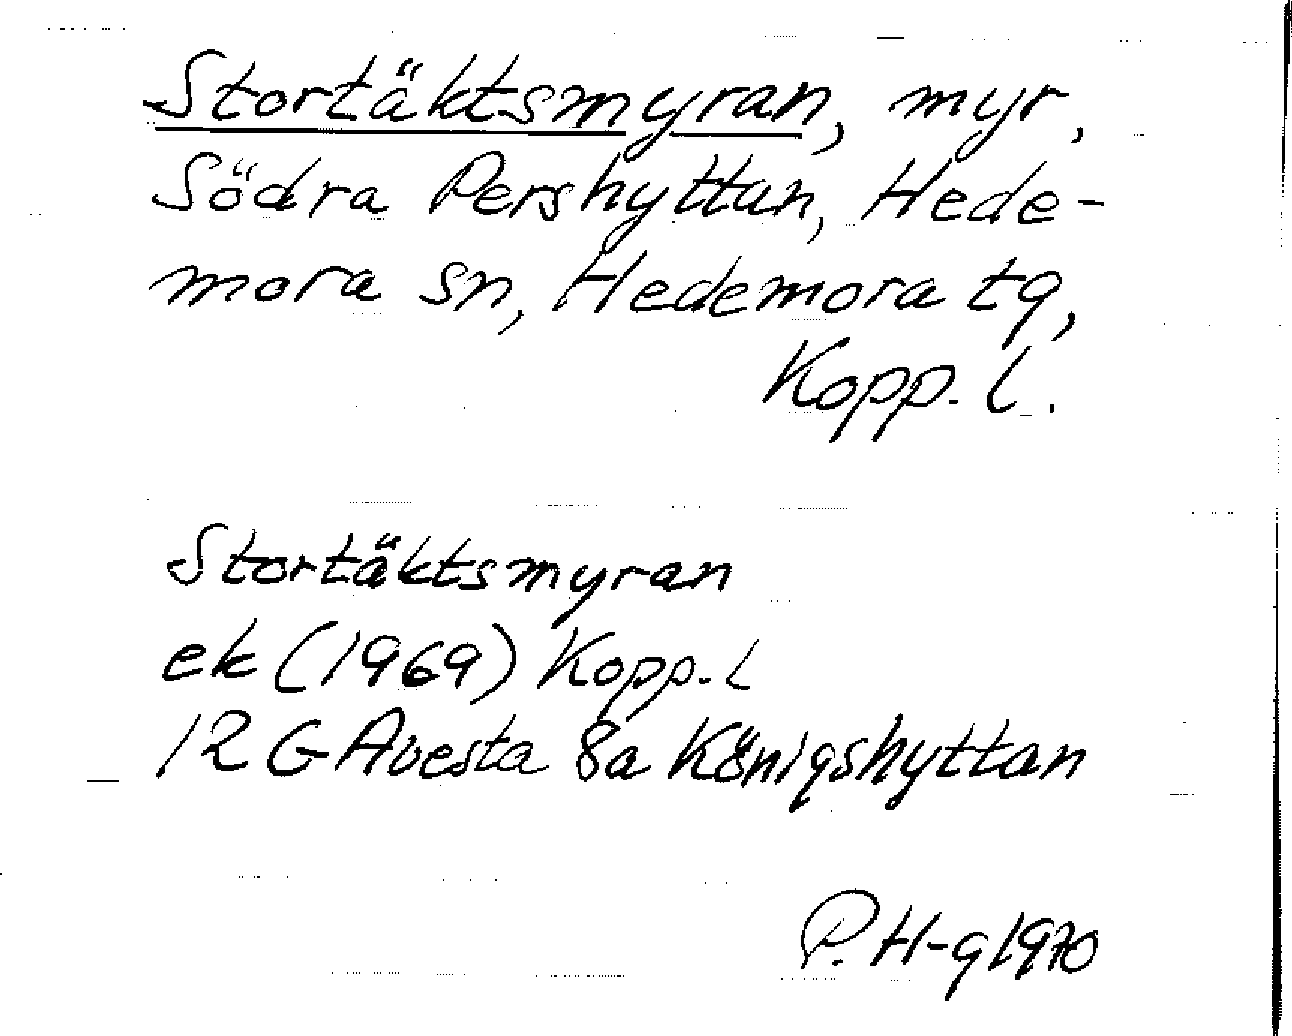 Stortäktsmyran, myr,
Södra Pershyttan, Hede-
mora sn, Hedemora tg,
Kopp. l.
Stortäktsmyran
ek (1969) Kopp. l
12 G Avesta 8a Königshyttan
P. H-g 1970